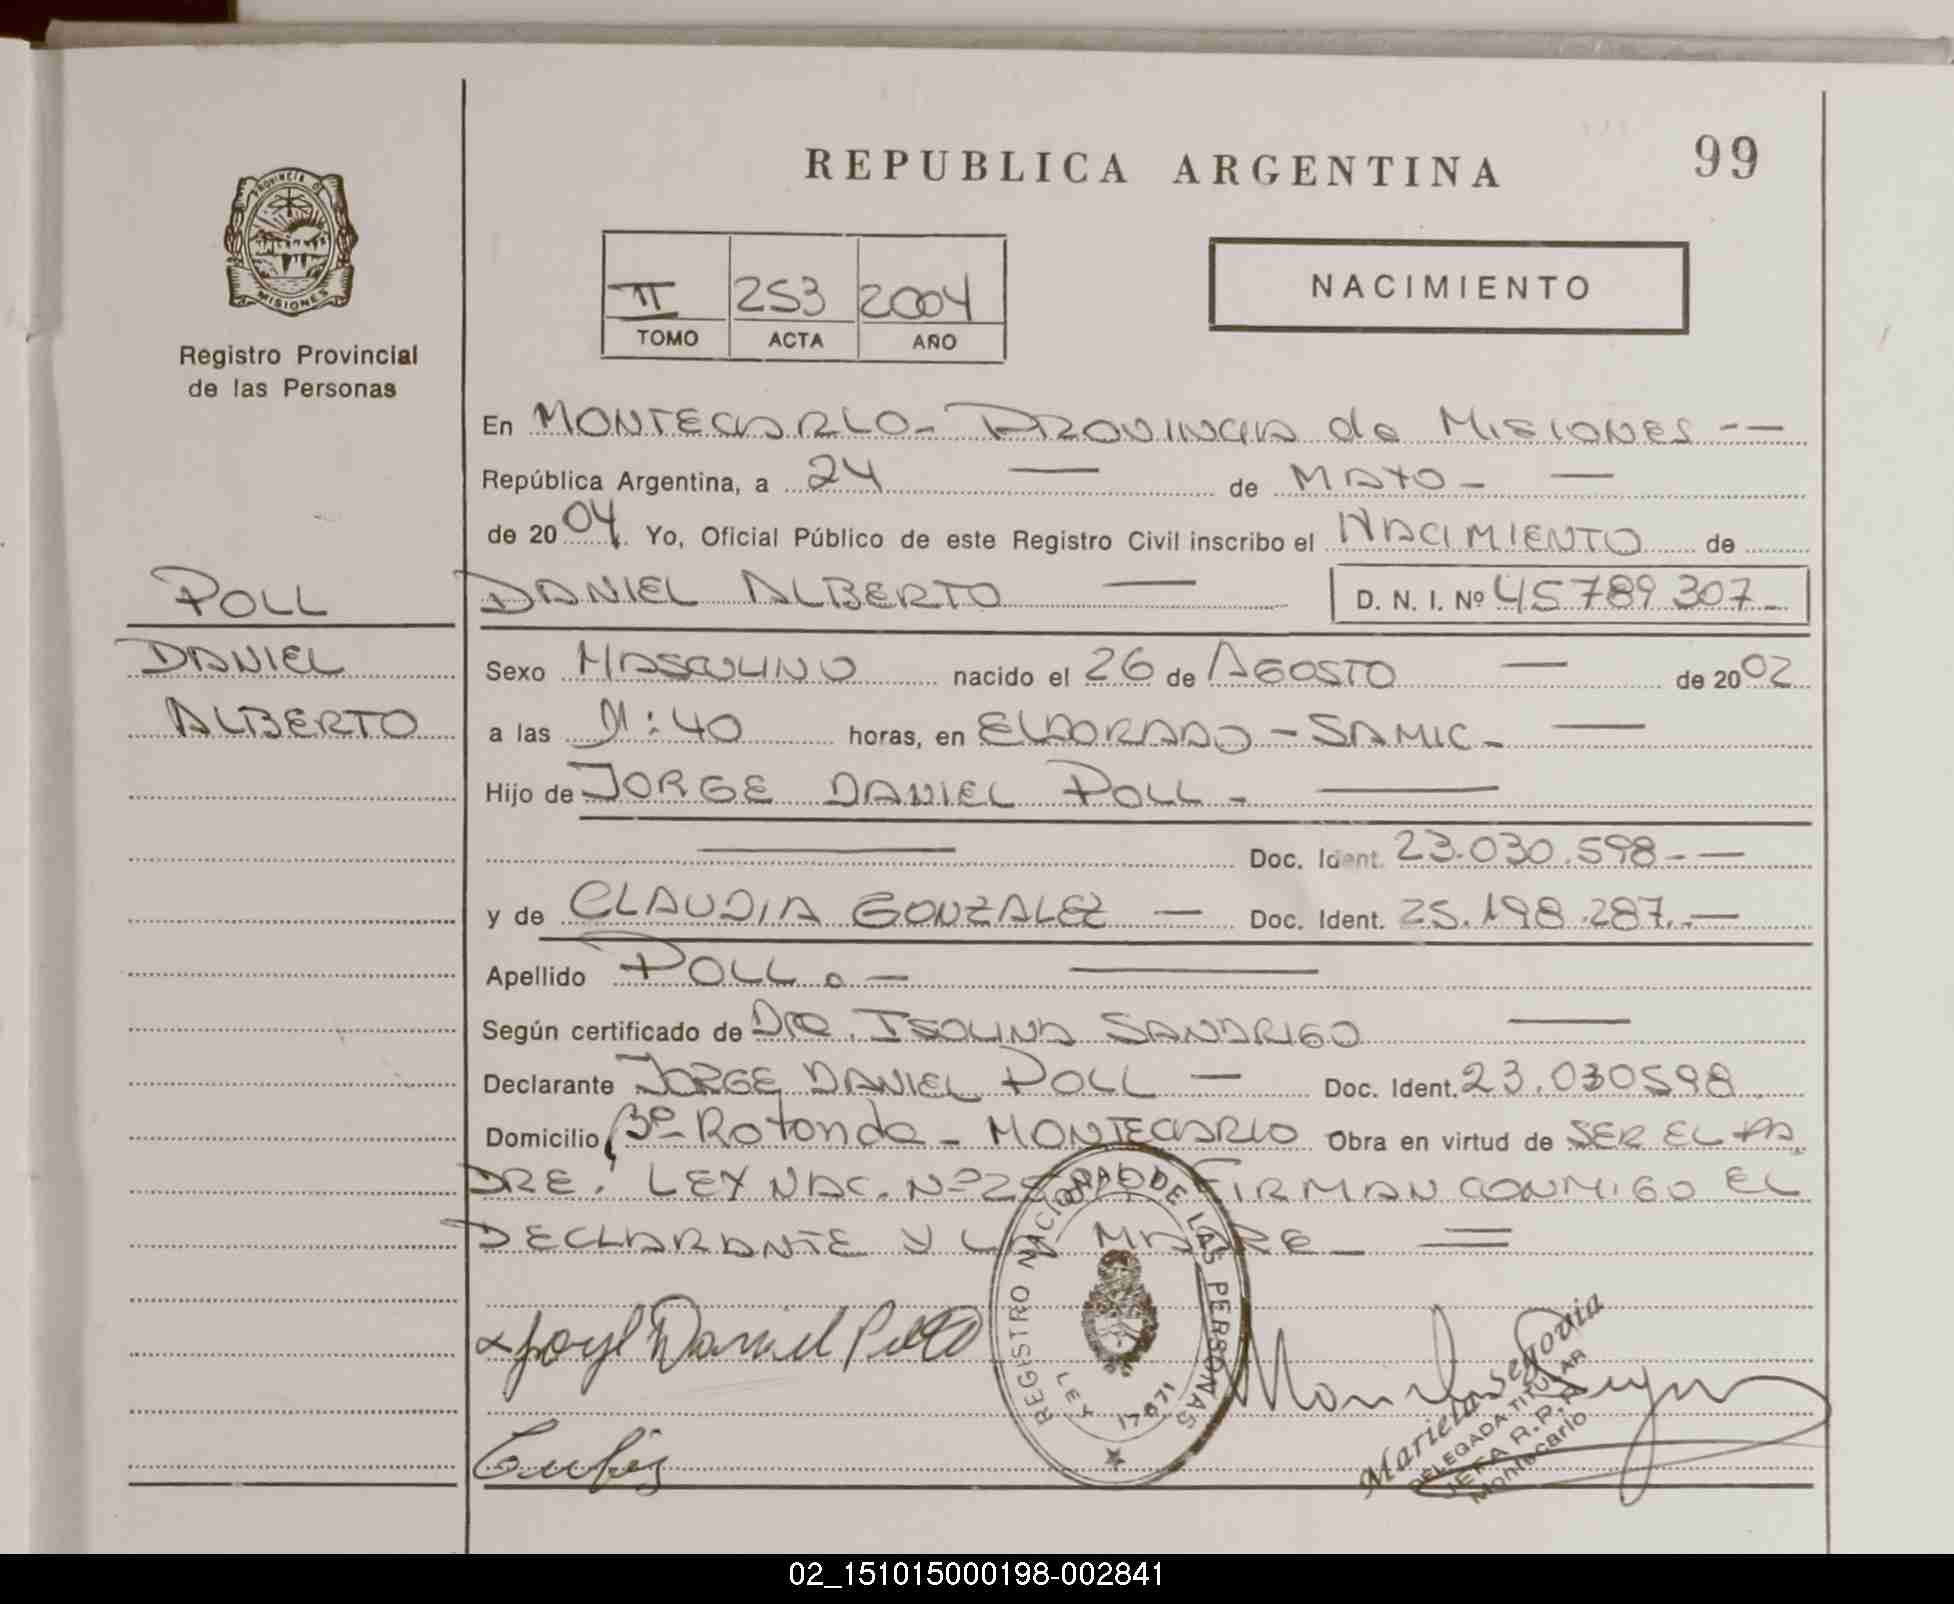 REPUBLICA ARGENTINA
99
PROVINCIA DE
MISIONES
Registro Provincial
de las Personas
II 253 2004
TOMO ACTA AÑO
NACIMIENTO
En MONTECARLO - PROVINCIA de MISIONES --
República Argentina, a 24 — de MAYO - —
de 2004. Yo, Oficial Público de este Registro Civil inscribo el NACIMIENTO de
POLL
DANIEL
ALBERTO
DANIEL ALBERTO — D. N. I. Nº 45789307-
Sexo MASCULINO nacido el 26 de AGOSTO — de 2002
a las :40 horas, en ELDORADO - SAMIC - —
Hijo de JORGE DANIEL POLL - —
— Doc. Ident. 23.030.598 - —
y de CLAUDIA GONZALEZ — Doc. Ident. 25.198.287. - —
Apellido POLL. - —
Según certificado de DRA. ISOLINA SANDRIGO —
Declarante JORGE DANIEL POLL — Doc. Ident. 23.030598
Domicilio 3º Rotonda - MONTECARLO Obra en virtud de SER EL PA
DRE. LEY NAC. Nº FIRMAN CONMIGO EL
DECLARANTE Y LA MADRE - =
Daniel
REGISTRO NACIONAL DE LAS PERSONAS
LEY 17671
Mariela Segovia
DELEGADA TITULAR
JEFA R.P.P.
Montecarlo
02_151015000198-002841